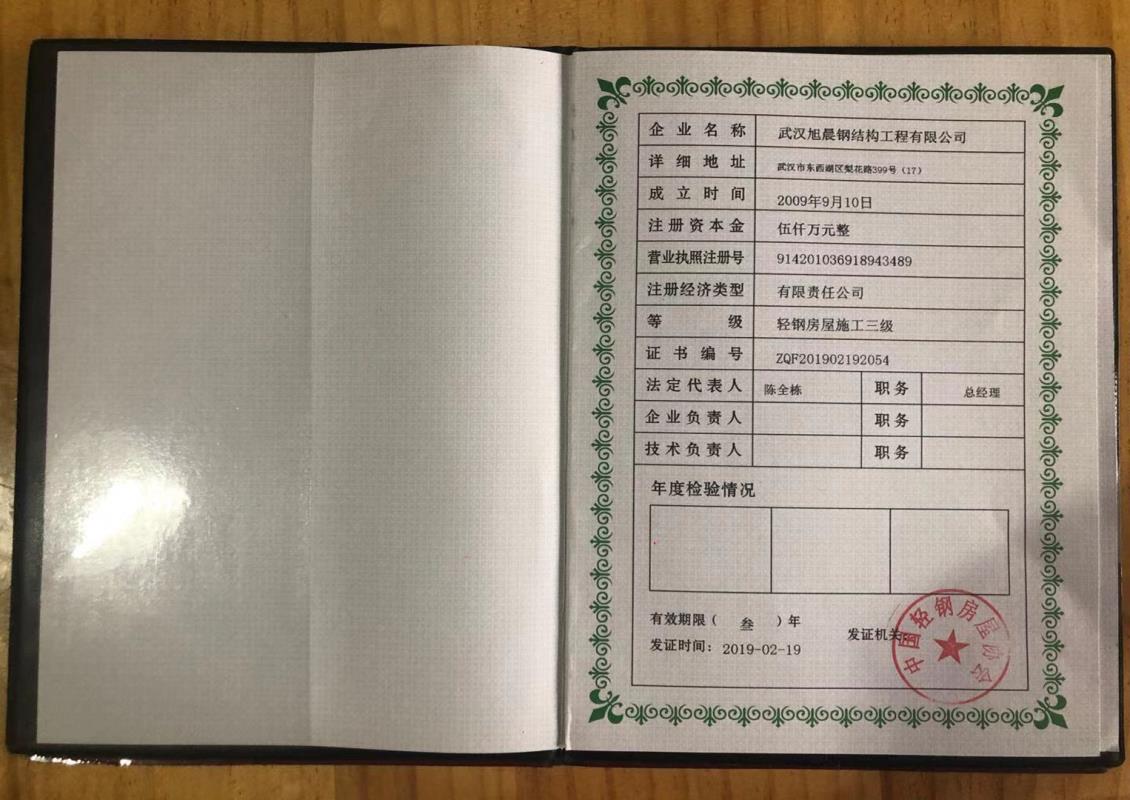 企业名称 武汉旭晨钢结构工程有限公司
详细地址 武汉市东西湖区梨花路399号（17）
成立时间 2009年9月10日
注册资本金 伍仟万元整
营业执照注册号 914201036918943489
注册经济类型 有限责任公司
等级 轻钢房屋施工三级
证书编号 ZQF201902192054
法定代表人 陈全栋 职务 总经理
企业负责人 职务
技术负责人 职务
年度检验情况
有效期限（ 叁 ）年
发证时间：2019-02-19
发证机关
中国轻钢房屋协会